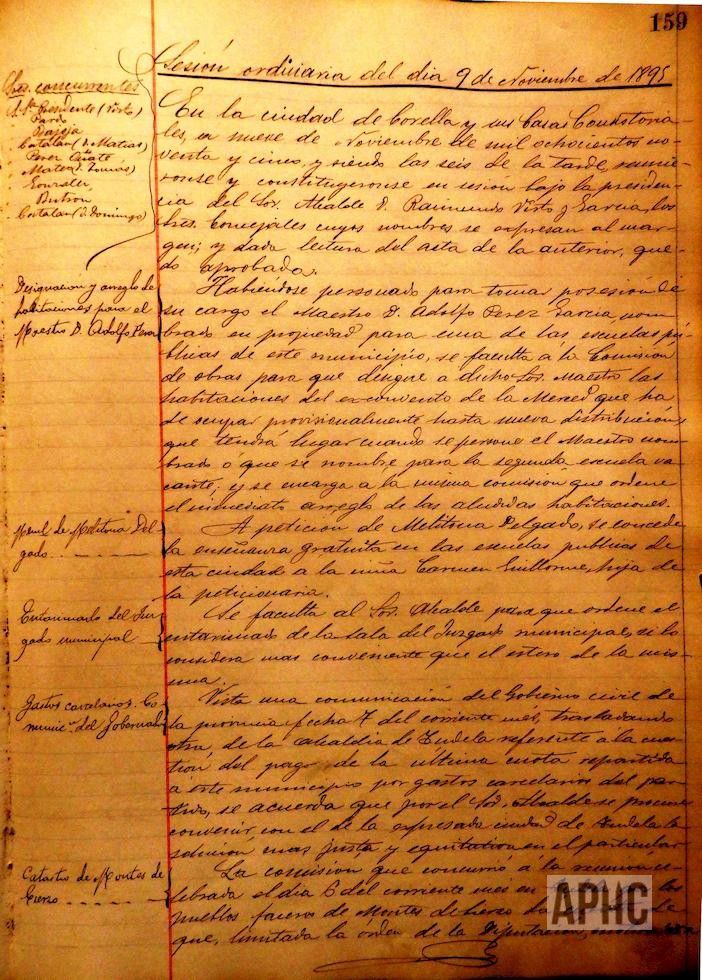 159
Sesión ordinaria del dia 9 de Noviembre de 1895
Sres. concurrentes
Sr. Presidente (Virto)
Pardo
Catalan (D. Matias)
Perez Oñate
Mateo (D. Tomás)
Gonzalez
Butron
Catalan (D. Domingo)
En la ciudad de Corella y sus Casas Consistoria-
les, a nueve de Noviembre de mil ochocientos no-
venta y cinco, y siendo las seis de la tarde, reunie-
ronse y constituyeronse en sesión bajo la presiden-
cia del Sor. Alcalde D. Raimundo Virto y Garcia, los
Sres. Concejales cuyos nombres se expresan al mar-
gen; y dada lectura del acta de la anterior, que-
dó aprobada.
Designacion y arreglo de
habitaciones para el
Maestro D. Adolfo Perez
Habiéndose personado para tomar posesión de
su cargo el Maestro D. Adolfo Perez Garcia nom-
brado en propiedad para una de las escuelas pú-
blicas de este municipio, se faculta á la Comision
de obras para que designe a dicho Sor. Maestro las
habitaciones del exconvento de la Merced que ha
de ocupar provisionalmente hasta nueva distribución
que tendrá lugar cuando se persone el Maestro nom-
brado ó que se nombre para la segunda escuela va-
cante; y se encarga a la misma comision que ordene
el inmediato arreglo de las aludidas habitaciones.
Meml. de Melitona Del-
gado
A peticion de Melitona Delgado, se concede
la enseñanza gratuita en las escuelas publicas de
esta ciudad a la niña Carmen Guillorme, hija de
la peticionaria.
Entarimado del Juz-
gado municipal
Se faculta al Sor. Alcalde para que ordene el
entarimado de la sala del Juzgado municipal, si lo
considera mas conveniente que el estero de la mis-
ma.
Gastos carcelarios. Co-
municn. del Gobernador
Vista una comunicación del Gobierno civil de
la provincia fecha 7 del corriente mes, trasladando
otra, de la alcaldia de Tudela referente a la cues-
tion del pago de la última cuota repartida
á este municipio por gastos carcelarios del par-
tido, se acuerda que por el Sor. Alcalde se procure
convenir con el de la expresada ciudad de Tudela la
solucion mas justa y equitativa en el particular
Catastro de Montes de
Cierzo
La comision que concurrió á la reunion ce-
lebrada el dia 6 del corriente mes en los
pueblos faceros de Montes de Cierzo
que, limitada la orden de la Diputacion
APHC